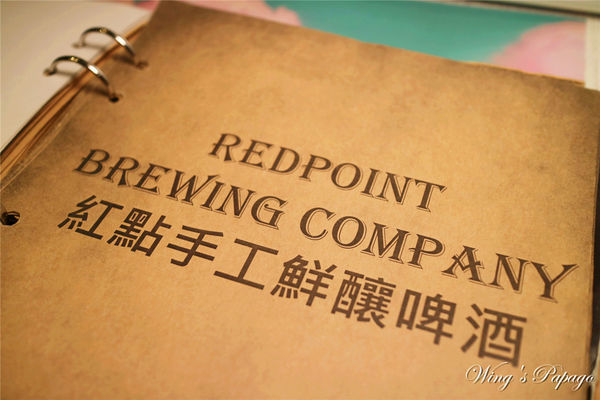 REDPOINT
BREWING COMPANY
紅點手工鮮釀啤酒
Wing's Papago